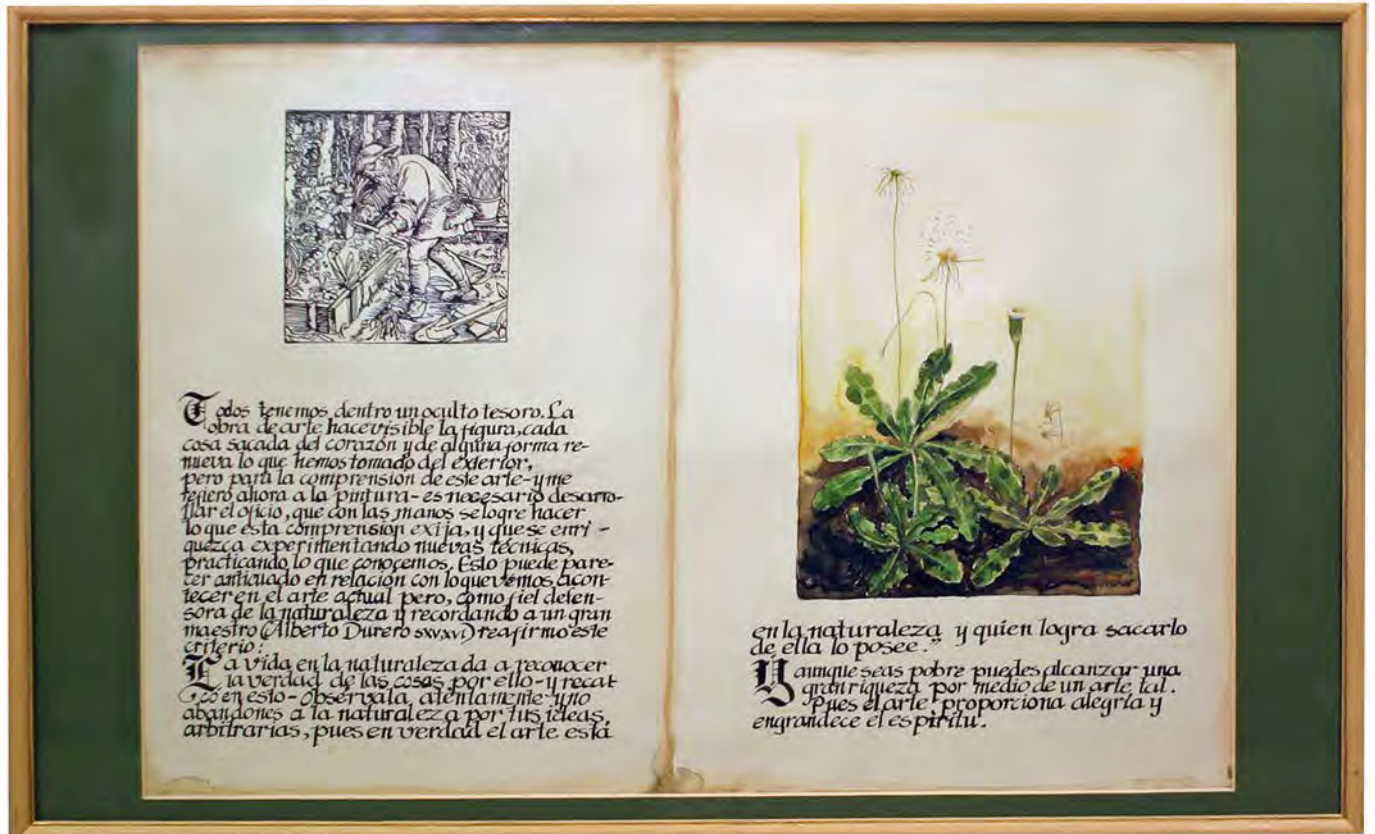 Todos tenemos dentro un oculto tesoro. La
obra de arte hace visible la figura, cada
cosa sacada del corazón y de alguna forma re-
nueva lo que hemos tomado del exterior,
pero para la comprensión de este arte-y me
refiero ahora a la pintura-es necesario desarro-
llar el oficio, que con las manos se logre hacer
lo que esta comprensión exija, y que se enri-
quezca experimentando nuevas técnicas,
practicando lo que conocemos. Esto puede pare-
cer anticuado en relación con lo que vemos acon-
tecer en el arte actual pero, como fiel defen-
sora de la naturaleza y recordando a un gran
maestro (Alberto Durero sxv.xvi) reafirmo este
criterio:
La vida en la naturaleza da a reconocer
la verdad de las cosas por ello-y recat
en esto-obsérvala atentamente y no
abandones a la naturaleza por tus ideas
arbitrarias, pues en verdad el arte está
en la naturaleza y quien logra sacarlo
de ella lo posee."
Y aunque seas pobre puedes alcanzar una
gran riqueza por medio de un arte tal.
Pues el arte proporciona alegría y
engrandece el espíritu.